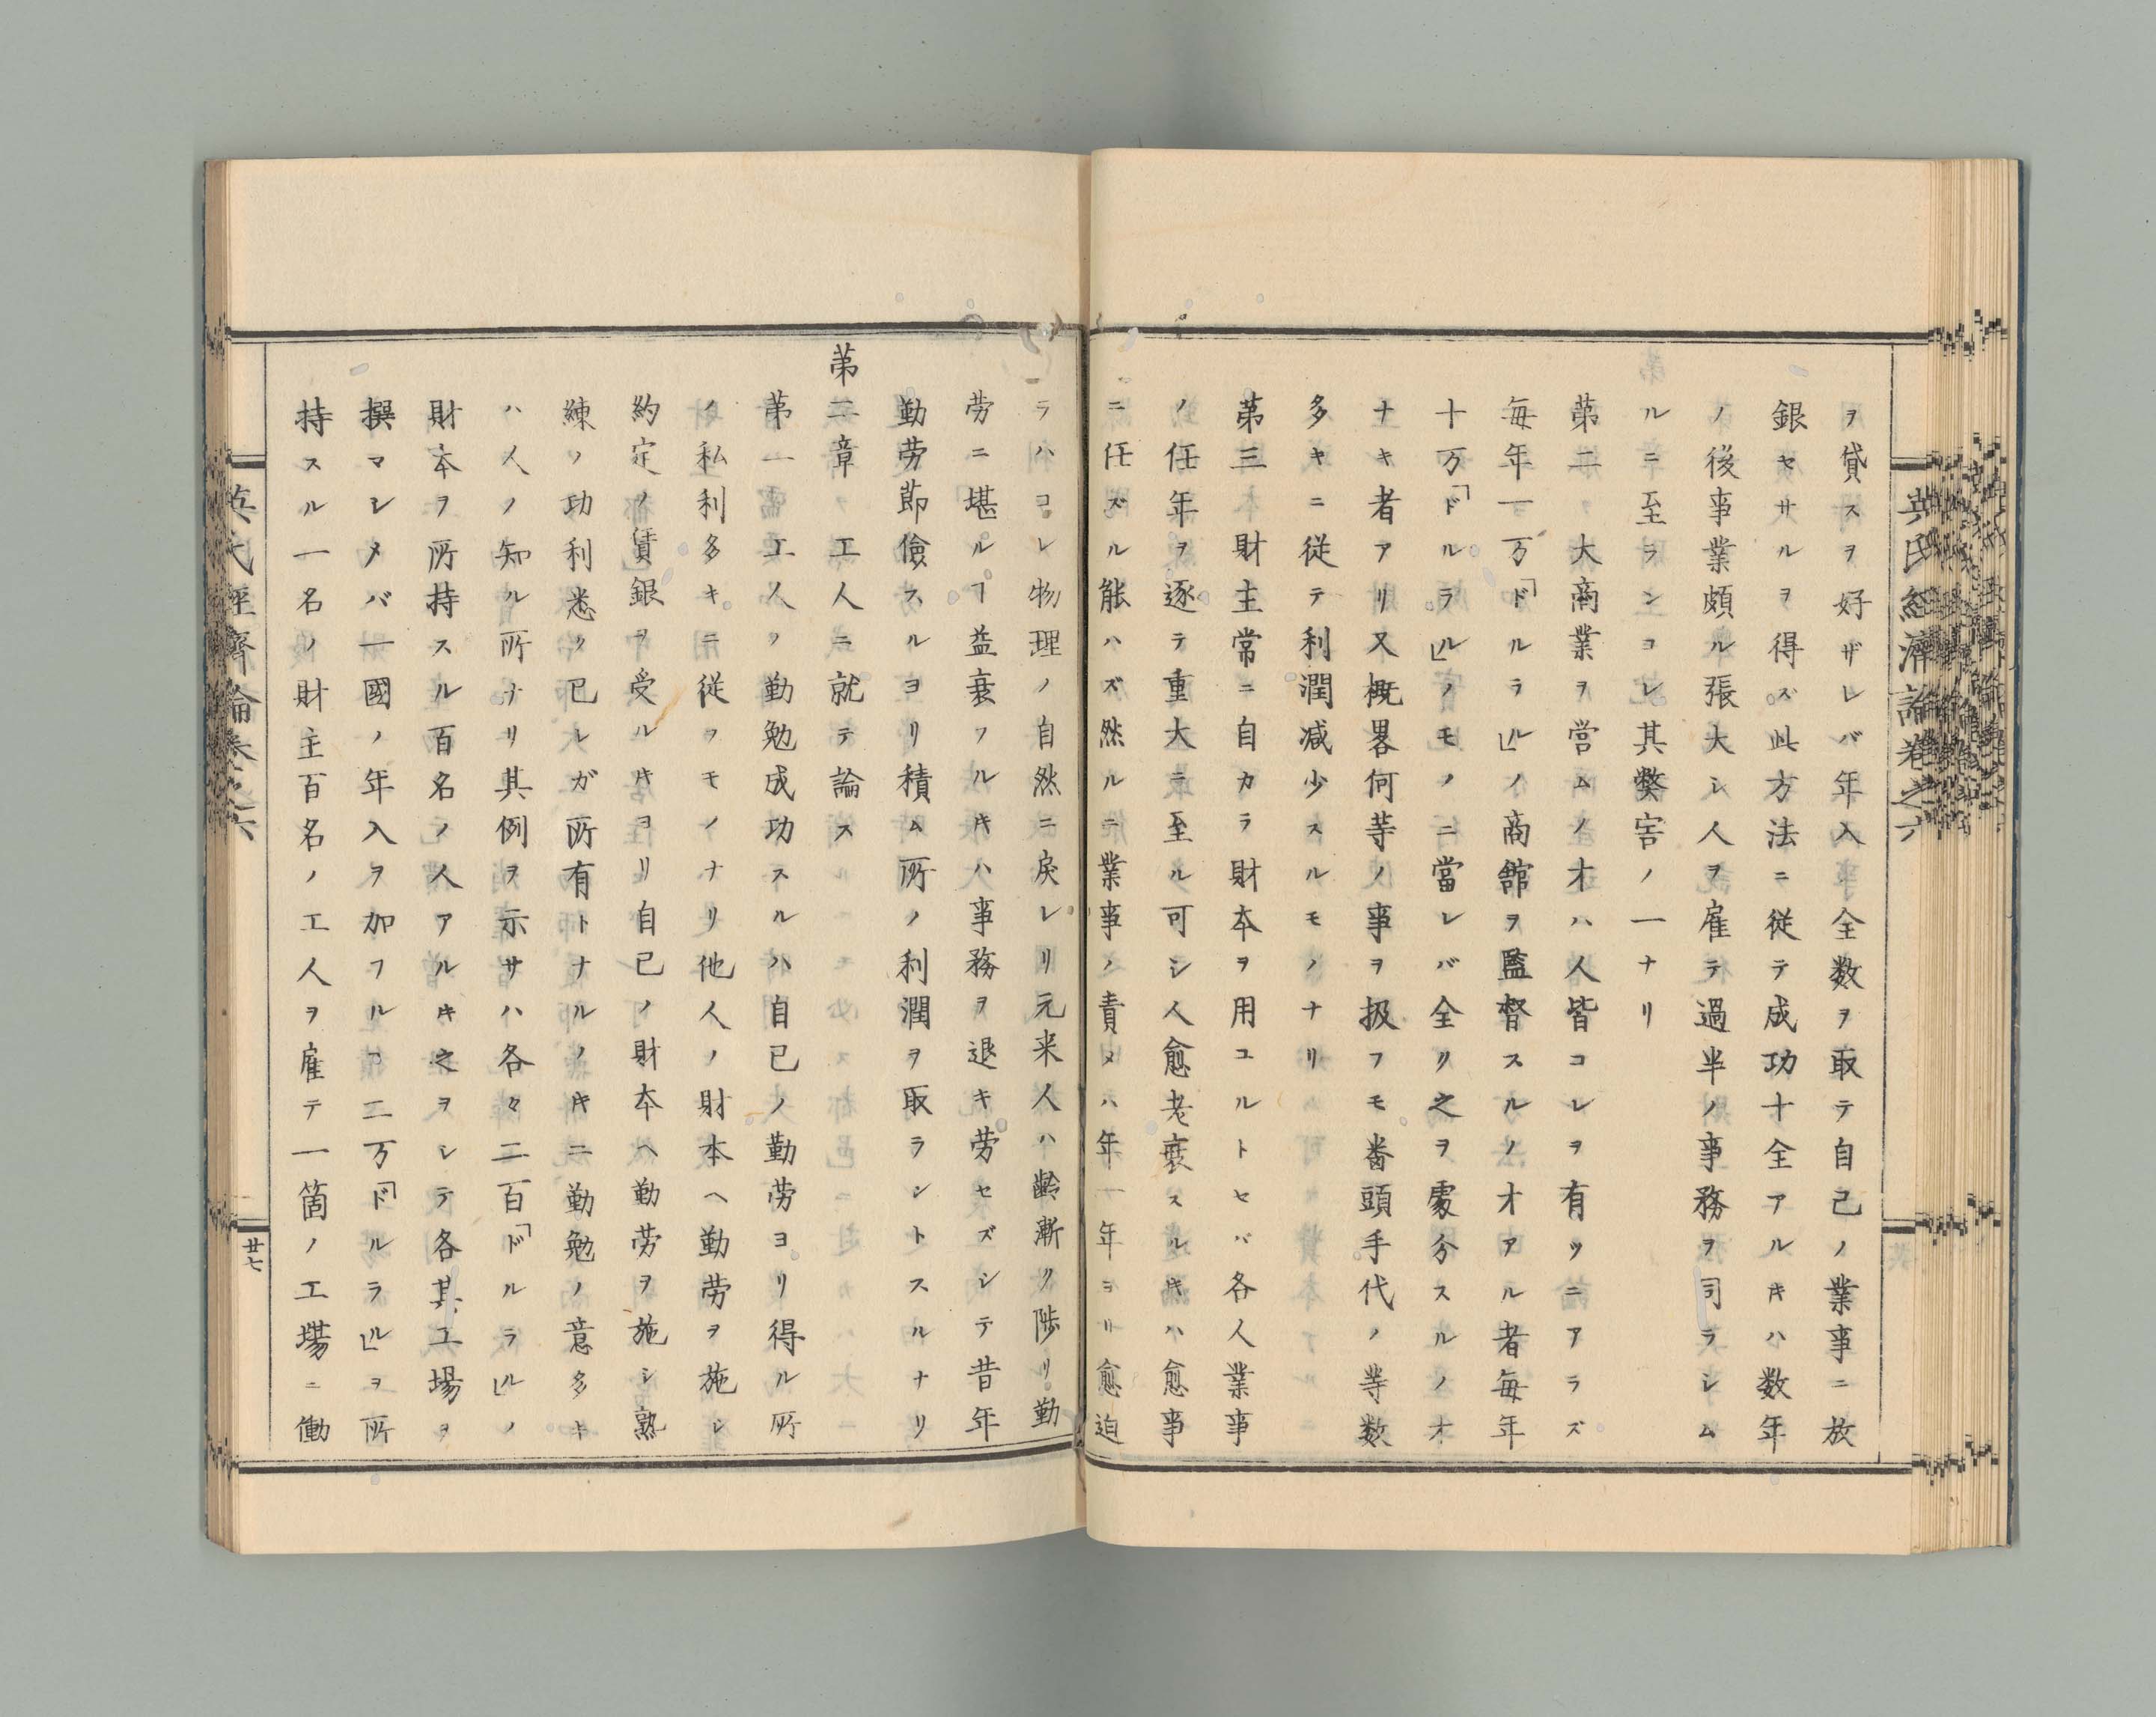 英氏経済論巻之六
ヲ貸スヲ好ザレバ年入全数ヲ取テ自己ノ業事ニ放
銀セサルヲ得ズ此方法ニ従テ成功十全アルキハ数年
ノ後事業頗ル張大シ人ヲ雇テ過半ノ事務ヲ司ラシム
ルニ至ラシコレ其弊害ノ一ナリ
第二大商業ヲ営ムノオハ人皆コレヲ有ツニアラズ
毎年一万「ドルラル」ノ商舘ヲ監督スルノオアル者毎年
十万「ドルラル」ノモノニ當レバ全ク之ヲ䖏分スルノオ
ナキ者アリ又概畧何等ノ事ヲ扱フモ畨頭手代ノ等数
多キニ従テ利潤减少スルモノナリ
第三財主常ニ自カラ財本ヲ用ユルトセバ各人業事
ノ任年ヲ逐テ重大ニ至ル可シ人愈老衰スルキハ愈事
ニ任ズル能ハズ然ルニ業事ノ責メハ年一年ヨリ愈迫
ラハコレ物理ノ自然ニ戻レリ元来人ハ齢漸ク陟リ勤
労ニ堪ルヿ益衰フルキハ事務ヲ退キ労セズシテ昔年
勤労節儉スルヨリ積ム所ノ利潤ヲ取ラントスルナリ
第二章 工人ニ就テ論ス
第一 工人ノ勤勉成功スルハ自己ノ勤労ヨリ得ル所
ノ私利多キニ従フモノナリ他人ノ財本ヘ勤労ヲ施シ
約定ノ賃銀ヲ受ルキヨリ自己ノ財本ヘ勤労ヲ施シ熟
練ノ功利悉ク己レガ所有トナルノキニ勤勉ノ意多キ
ハ人ノ知ル所ナリ其例ヲ示サハ各々二百「ドルラル」ノ
財本ヲ所持スル百名ノ人アルキ之ヲシテ各其工場ヲ
撰マシメバ一國ノ年入ヲ加フルヿ二万「ドルラル」ヲ所
持スル一名ノ財主百名ノ工人ヲ雇テ一箇ノ工場ニ働
英氏経済論巻之六
廿七